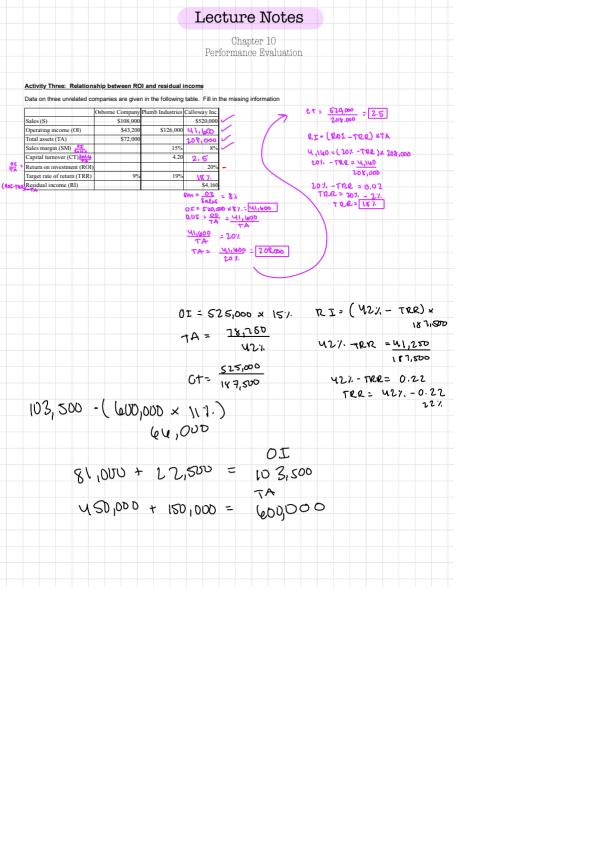 Lecture Notes
Chapter 10
Performance Evaluation
Activity Three: Relationship between ROI and residual income
Data on three unrelated companies are given in the following table. Fill in the missing information
Osborne Company Plumb Industries Calloway Inc.
Sales (S) $108,000 $520,000
Operating income (OI) $43,200 $126,000 41,600
Total assets (TA) $72,000 208,000
Sales margin (SM) OI/Sales 15% 8%
Capital turnover (CT) Sales/TA 4.20 2.5
OI/TA = Return on investment (ROI) 20%
Target rate of return (TRR) 9% 19% 18%
(ROI-TRR)×TA Residual income (RI) $4,160
SM = OI/Sales = 8%
OI = 520,000 × 8% = 41,600
ROI = OI/TA = 41,600/TA
41,600/TA = 20%
TA = 41,600/20% = 208,000
CT = 520,000/208,000 = 2.5
RI = (ROI - TRR) × TA
4,160 = (20% - TRR) × 208,000
20% - TRR = 4,160/208,000
20% - TRR = 0.02
TRR = 20% - 2%
TRR = 18%
OI = 525,000 × 15%
TA = 78,750/42%
CT = 525,000/187,500
RI = (42% - TRR) × 187,500
42% - TRR = 41,250/187,500
42% - TRR = 0.22
TRR = 42% - 0.22
22%
103,500 - (600,000 × 11%)
66,000
OI
81,000 + 22,500 = 103,500
TA
450,000 + 150,000 = 600,000